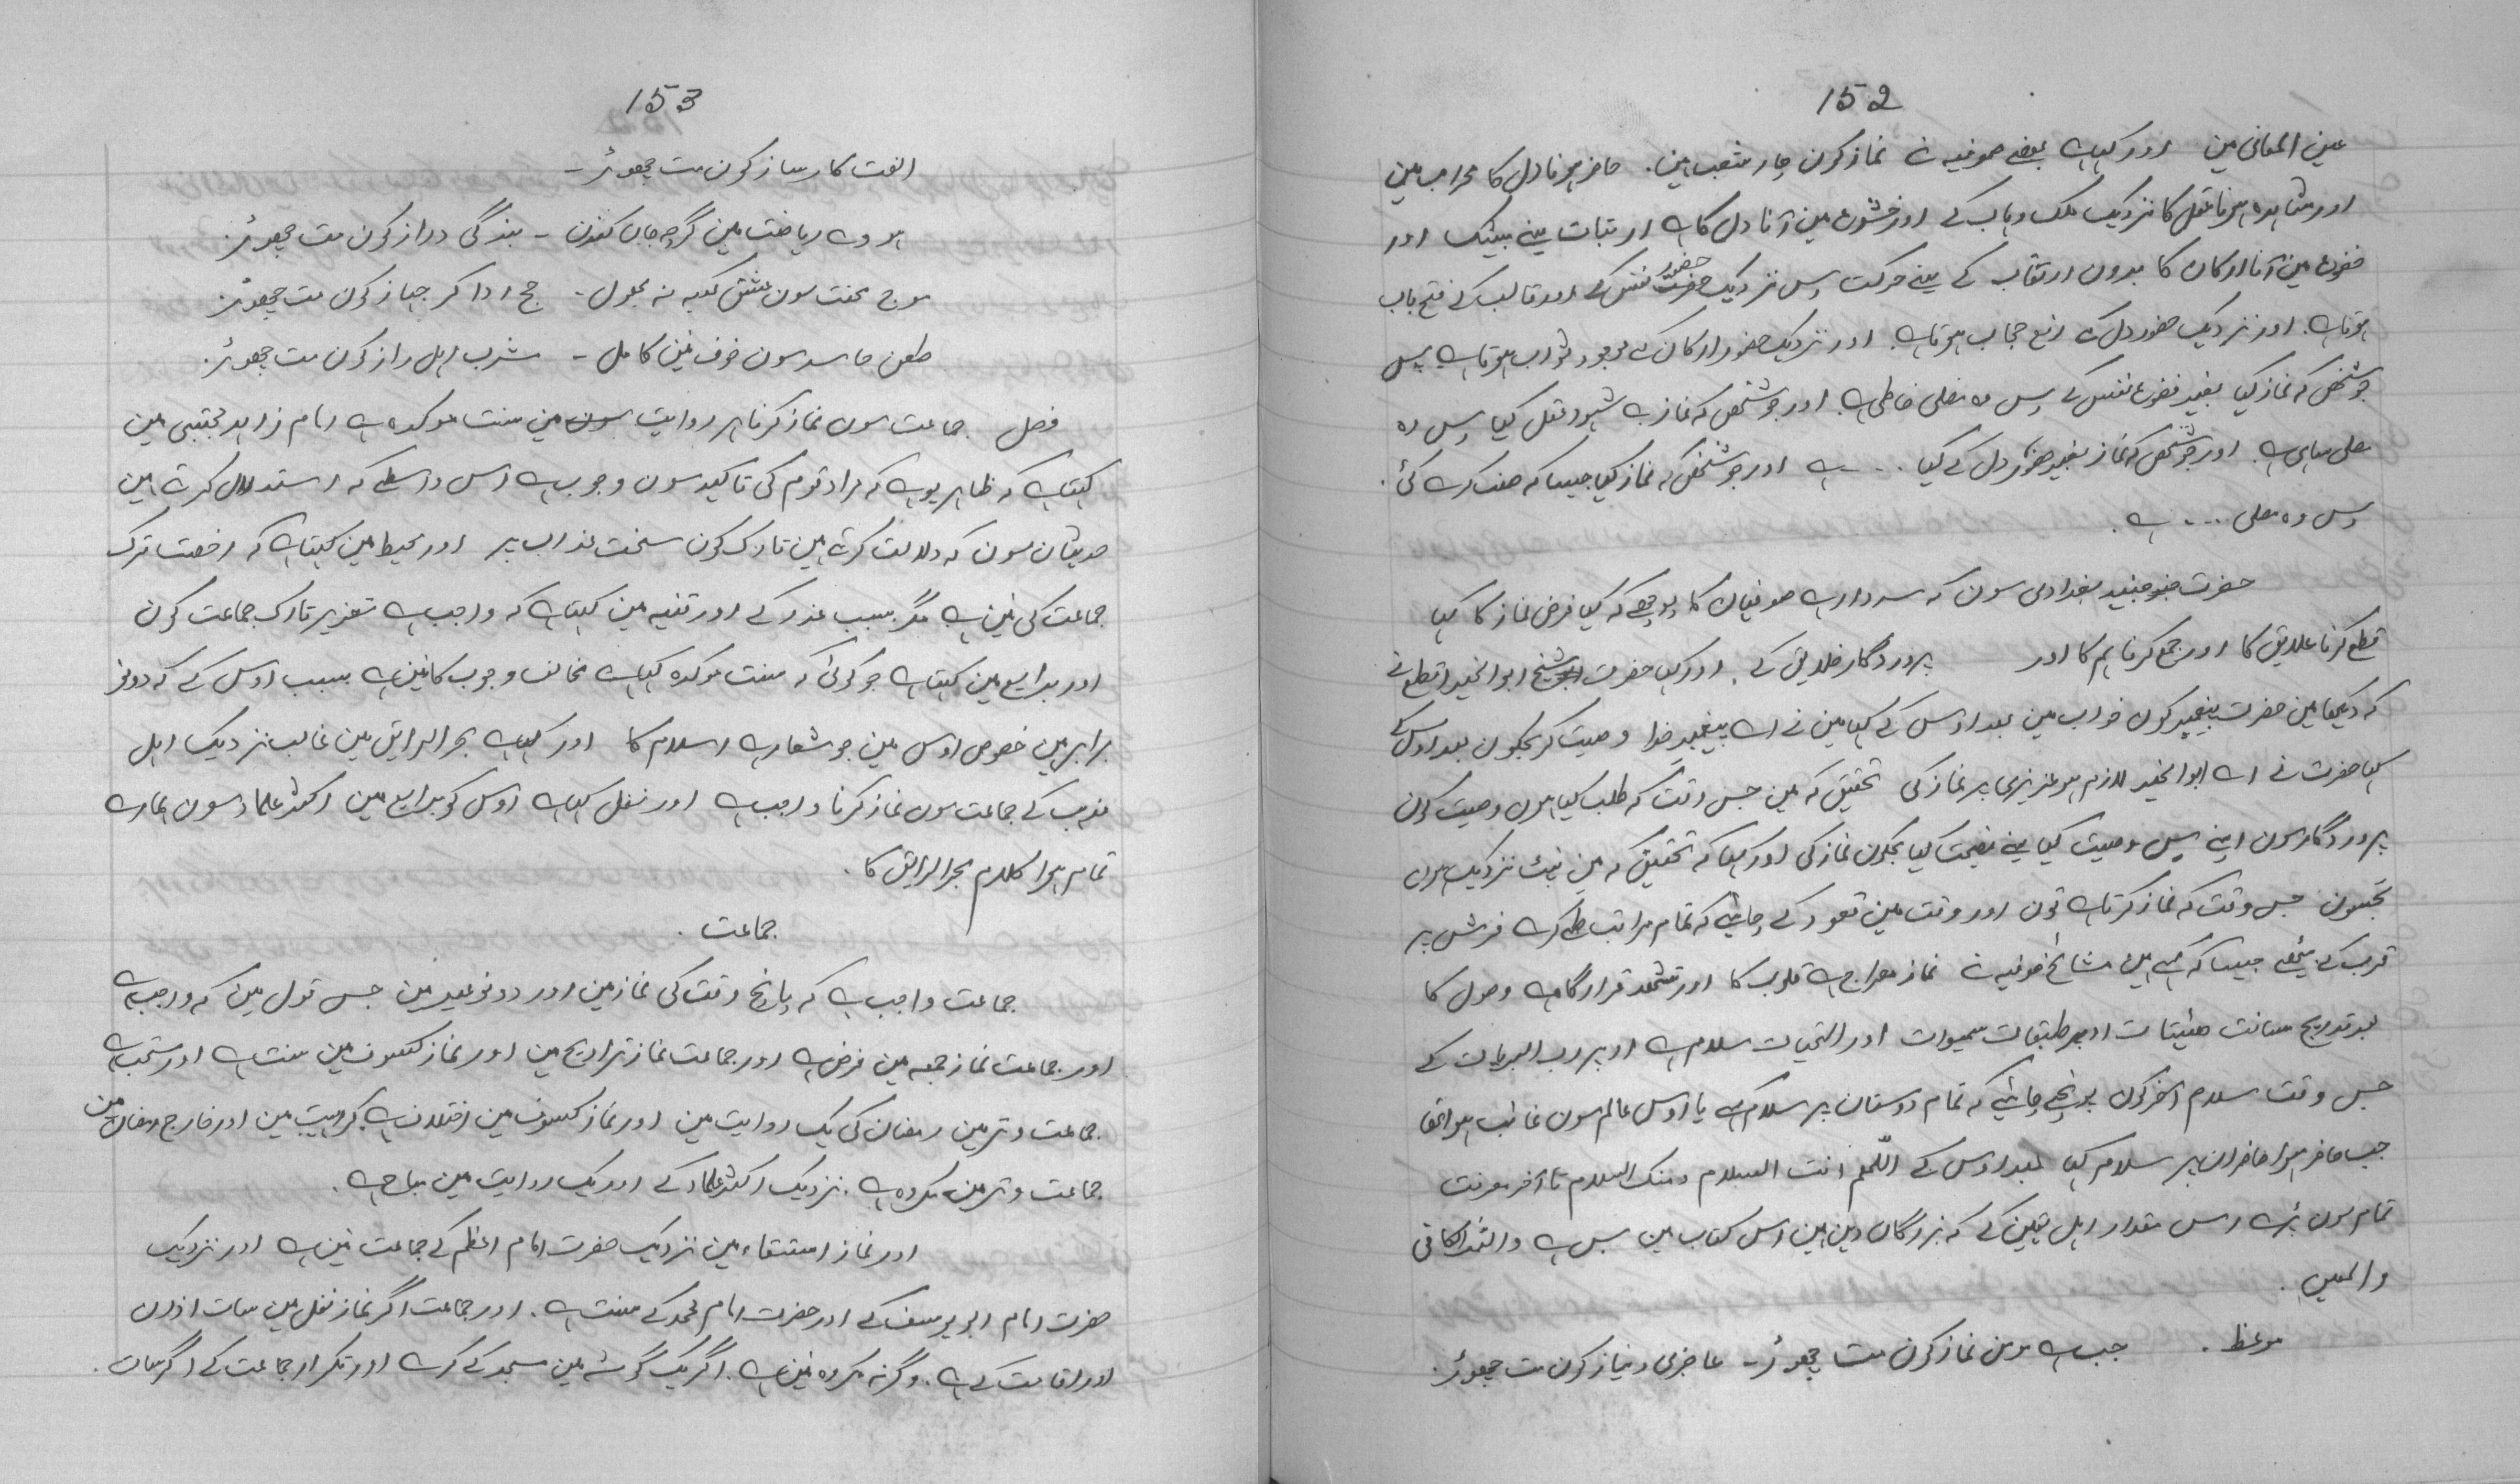 152
عین المعانی مین اور کہا ہے بعضے صوفیہ نے نماز کون چار شعب ہین . حاضر ہونا دل کا محراب مین
اور مشاہدہ ہونا عقل کا نزدیک ملک وہاب کے اور خشوع مین آنا دل کا ہے ارتیاب یعنے بیشک اور
خضوع مین آنا ارکان کا بدون ارتقاب کے یعنے حرکت پس نزدیک حضور نفس کے اور قالب کے فتح باب
ہوتا ہے . اور نزدیک حضور دل کے رفع حجاب ہوتا ہے اور نزدیک حضور ارکان کے وجود ثواب ہوتا ہے پس
جو شخص کہ نماز کیا بغیر خضوع نفس کے پس وہ مصلی خاطی ہے . اور جو شخص کہ نماز بے شہود عقل کیا پس وہ
مصلی ساہی ہے . اور جو شخص کہ نماز بغیر حضور دل کے کیا .... ہے اور جو شخص کہ نماز کیا جیسا کہ صفت کرے گئی .
پس وہ مصلی .... ہے .
حضرت جنید بغدادی سون کہ سردار ہے صوفیان کا پوچھے کہ کیا فرض نماز کا کہا
قطع کرنا علایق کا اور جمع کرنا ہم کا اور پروردگار خلایق کے . اور کہا حضرت شیخ ابوالخیر اقطع نے
کہ دیکھا مین حضرت پیغمبر کون خواب مین بعد اوس کے کہا مین نے اے پیغمبر خدا وصیت کر مجکون بعد اوس کے
کہا حضرت نے اے ابوالخیر لازم ہو عزیزی پر نماز کی تحقیق کہ مین جس وقت کہ طلب کیا ہون وصیت کون
پروردگار سون اپنے پس وصیت کیا یعنے نصیحت کیا مجکون نماز کی اور کہا کہ تحقیق کہ مین نہایت نزدیک ہون
تجسون جس وقت کہ نماز کرتا ہے تون اور وقت مین قعود کے چاہئے کہ تمام مراتب طے کرے فرش پر
قرب کے بیٹھے جیسا کہ کہے ہین مشائخ صوفیہ نے نماز معراج ہے قلوب کا اور تشہد قرارگاہ ہے وصول کا
بعد تدریج مسافت ہیئتات اوپر طبقات سمیوات اور التحیات سلام ہے اوپر رب البریات کے
جس وقت سلام آخر کون پونچے چاہئے کہ تمام دوستان پر سلام کہے یا اوس عالم سون غائب ہوا تھا
جب حاضر ہوا حاضران پر سلام کیا بعد اوس کے اللّٰھم انت السلام ومنک السلام تا آخر معرفت
تمام سون پڑھے اس مقدار اہل یقین کے کہ بزرگان دین ہین اس کتاب مین بس ہے واللہ الکافی
والمعین .
موعظ . جب ہے مومن نماز کون مت چھوڑ - عاجزی و نیاز کون مت چھوڑ .
153
الفت کارساز کون مت چھوڑ -
ہووے ریاضت مین گرچہ جان کندن - بندگی دراز کون مت چھوڑ .
موج محنت سون عشق کعبہ نہ بھول - حج ادا کر جہاز کون مت چھوڑ .
طعن حاسد سون خوف نین کامل - مشرب اہل راز کون مت چھوڑ .
فصل جماعت سون نماز کرنا ہر روایت مین سنت موکدہ ہے امام زاہد مجتبیٰ مین
کہتا ہے کہ ظاہر یو ہے کہ مراد قوم کی تاکید سون وجوب ہے اس واسطے کہ استدلال کرتے ہین
حدیثان سون کہ دلالت کرتے ہین تارک کون سخت عذاب پر اور محیط مین کہتا ہے کہ رخصت ترک
جماعت کی نین ہے مگر بسبب عذر کے اور قنیہ مین کہتا ہے کہ واجب ہے تعزیر تارک جماعت کون
اور بدایع مین کہتا ہے جو کوئی کہ سنت موکدہ کہا ہے مخالف وجوب کا نین ہے بسبب اوس کے کہ دونو
برابر ہین خصوص اوس مین جو شعار ہے اسلام کا اور کہا ہے بحر الرایق مین غالب نزدیک اہل
مذہب کے جماعت سون نماز کرنا واجب ہے اور نقل کیا ہے اوس کو بدایع مین اکثر علماء سون ہمارے
تمام ہوا کلام بحر الرایق کا .
جماعت .
جماعت واجب ہے کہ پانچ وقت کی نماز مین اور دونو عید مین جس قول مین کہ واجب ہے
اور جماعت نماز جمعہ مین فرض ہے اور جماعت نماز تراویح مین اور نماز کسوف مین سنت ہے اور مستحب ہے
جماعت وتر مین رمضان کی یک روایت مین اور نماز کسوف مین اختلاف ہے کراہیت مین اور خارج رمضان مین
جماعت وتر مین مکروہ ہے . نزدیک اکثر علماء کے اور یک روایت مین مباح ہے .
اور نماز استسقاء مین نزدیک حضرت امام اعظم کے جماعت نین ہے اور نزدیک
حضرت امام ابو یوسف کے اور حضرت امام محمد کے سنت ہے . اور جماعت اگر نماز نفل مین سات اذان
اور اقامت کے ہے . وگرنہ مکروہ نین ہے . اگر یک گوشے مین مسجد کے کرے اور تکرار جماعت کے اگر سات .